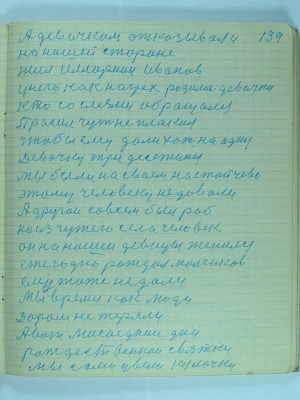 А девочкам отказывали 139
на нашей стороне
жил Илларион Иванов
у него как на грех родились девочки
Кто со слезми обращался
Просил чуть не плакал
чтобы ему дали хож на одну
Девочку три десетины
мы были на своем настойчево
этому человеку недовали
А другой совсем был раб
из чужего села человек
он на нашей девице женилсу
ежегодно рождал малчиков
ему тоже недали
Мы время как люди
Даром не теряли
А вот последнии дни
рождественскии святки
мы сами